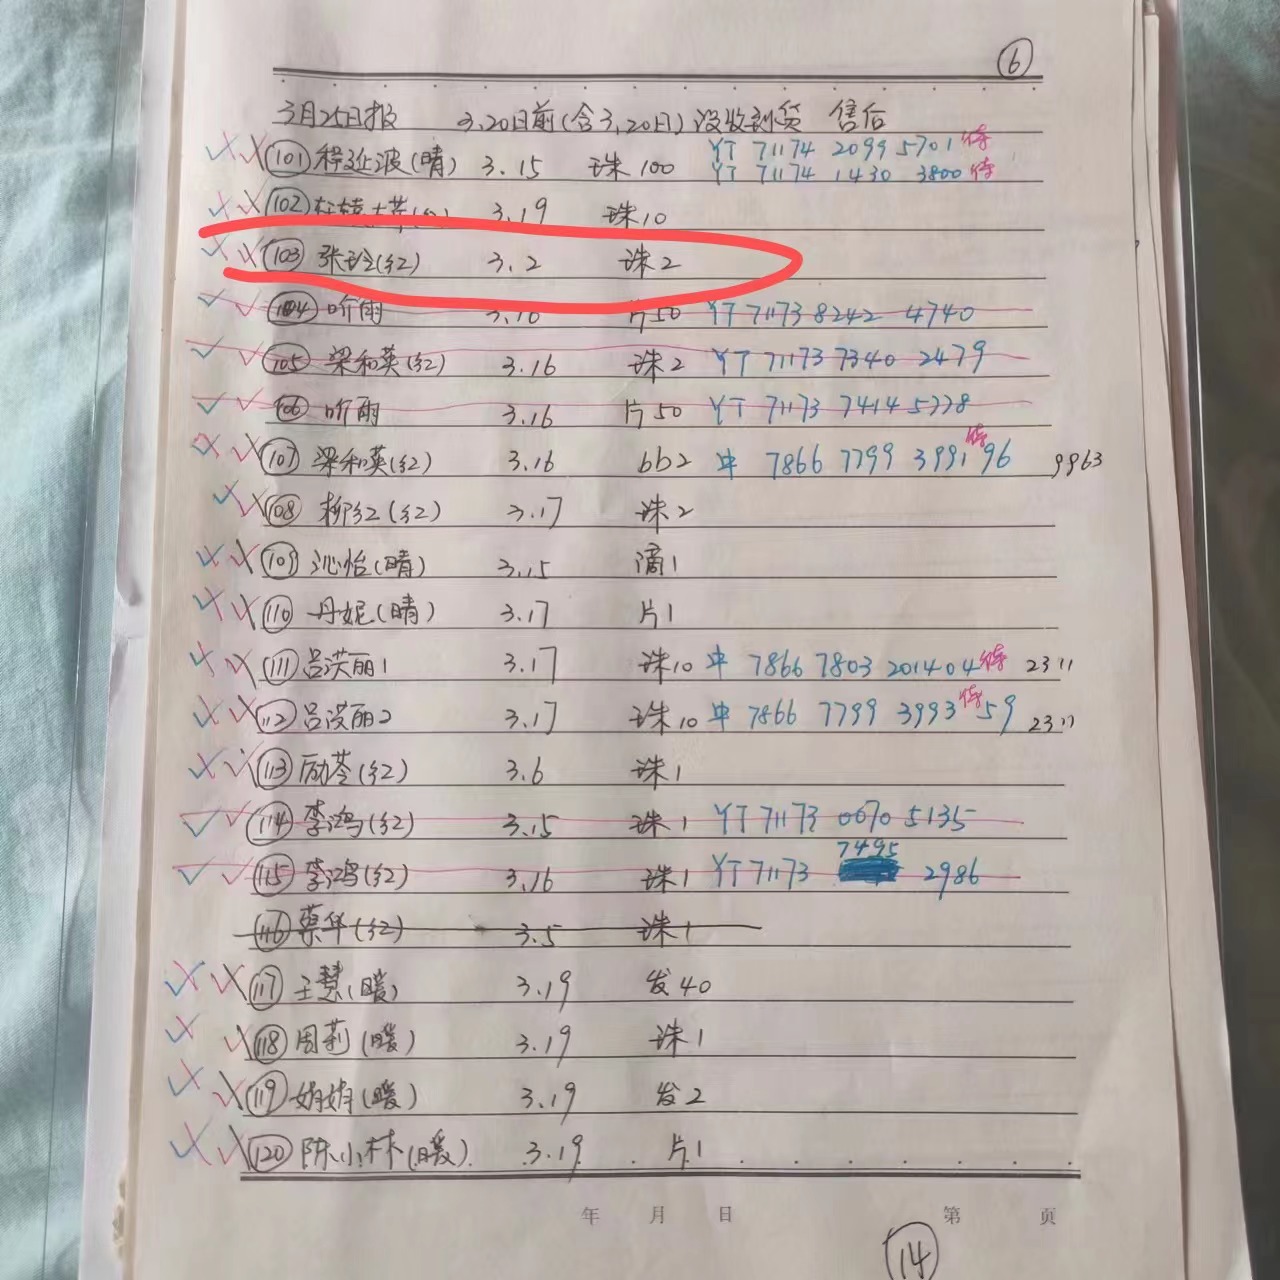 ⑥
3月25日报 3.20日前(含3.20日)没收到货 售后
101 程延波(晴) 3.15 珠100 YT 71174 2099 5701 待
YT 71174 1430 3800 待
102 3.19 珠10
103 张玲(红) 3.2 珠2
104 听雨 3.16 片50 YT 71173 8242 4740
105 梁和英(红) 3.16 珠2 YT 71173 7340 2479
106 听雨 3.16 片50 YT 71173 7414 5778
107 梁和英(红) 3.16 bb2 中 7866 7799 3991 96 待 9963
108 柳红(红) 3.17 珠2
109 沁怡(晴) 3.15 滴1
110 丹妮(晴) 3.17 片1
111 吕洪丽1 3.17 珠10 中 7866 7803 201404 待 2311
112 吕洪丽2 3.17 珠10 中 7866 7799 3993 59 待 2311
113 励苓(红) 3.6 珠1
114 李鸿(红) 3.15 珠1 YT 71173 0670 5135
115 李鸿(红) 3.16 珠1 YT 71173 7495 2986
116 蔡华(红) 3.5 珠1
117 王慧(暖) 3.19 发40
118 周莉(暖) 3.19 珠1
119 娟娟(暖) 3.19 发2
120 陈小林(暖) 3.19 片1
年 月 日 第 页
⑭